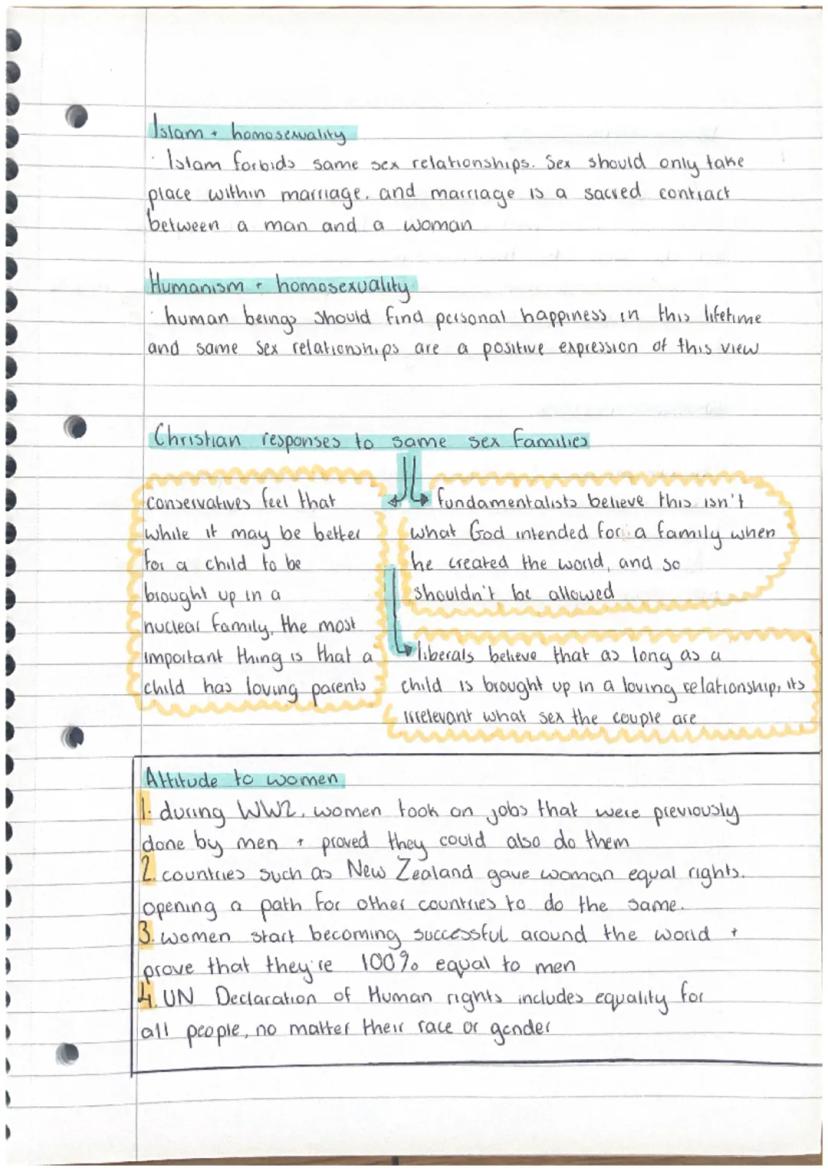 Islam + homosexuality
· Islam forbids same sex relationships. Sex should only take
place within marriage, and marriage is a sacred contract
between a man and a woman
Humanism + homosexuality
· human beings should find personal happiness in this lifetime
and same sex relationships are a positive expression of this view
Christian responses to same sex families
conservatives feel that
while it may be better
for a child to be
brought up in a
nuclear family, the most
important thing is that a
child has loving parents
fundamentalists believe this isn't
what God intended for a family when
he created the world, and so
shouldn't be allowed
liberals believe that as long as a
child is brought up in a loving relationship, its
irrelevant what sex the couple are
Attitude to women
1. during WW2, women took on jobs that were previously
done by men + proved they could also do them
2. countries such as New Zealand gave woman equal rights.
opening a path for other countries to do the same.
3. women start becoming successful around the world +
prove that they're 100% equal to men
4. UN Declaration of Human rights includes equality for
all people, no matter their race or gender